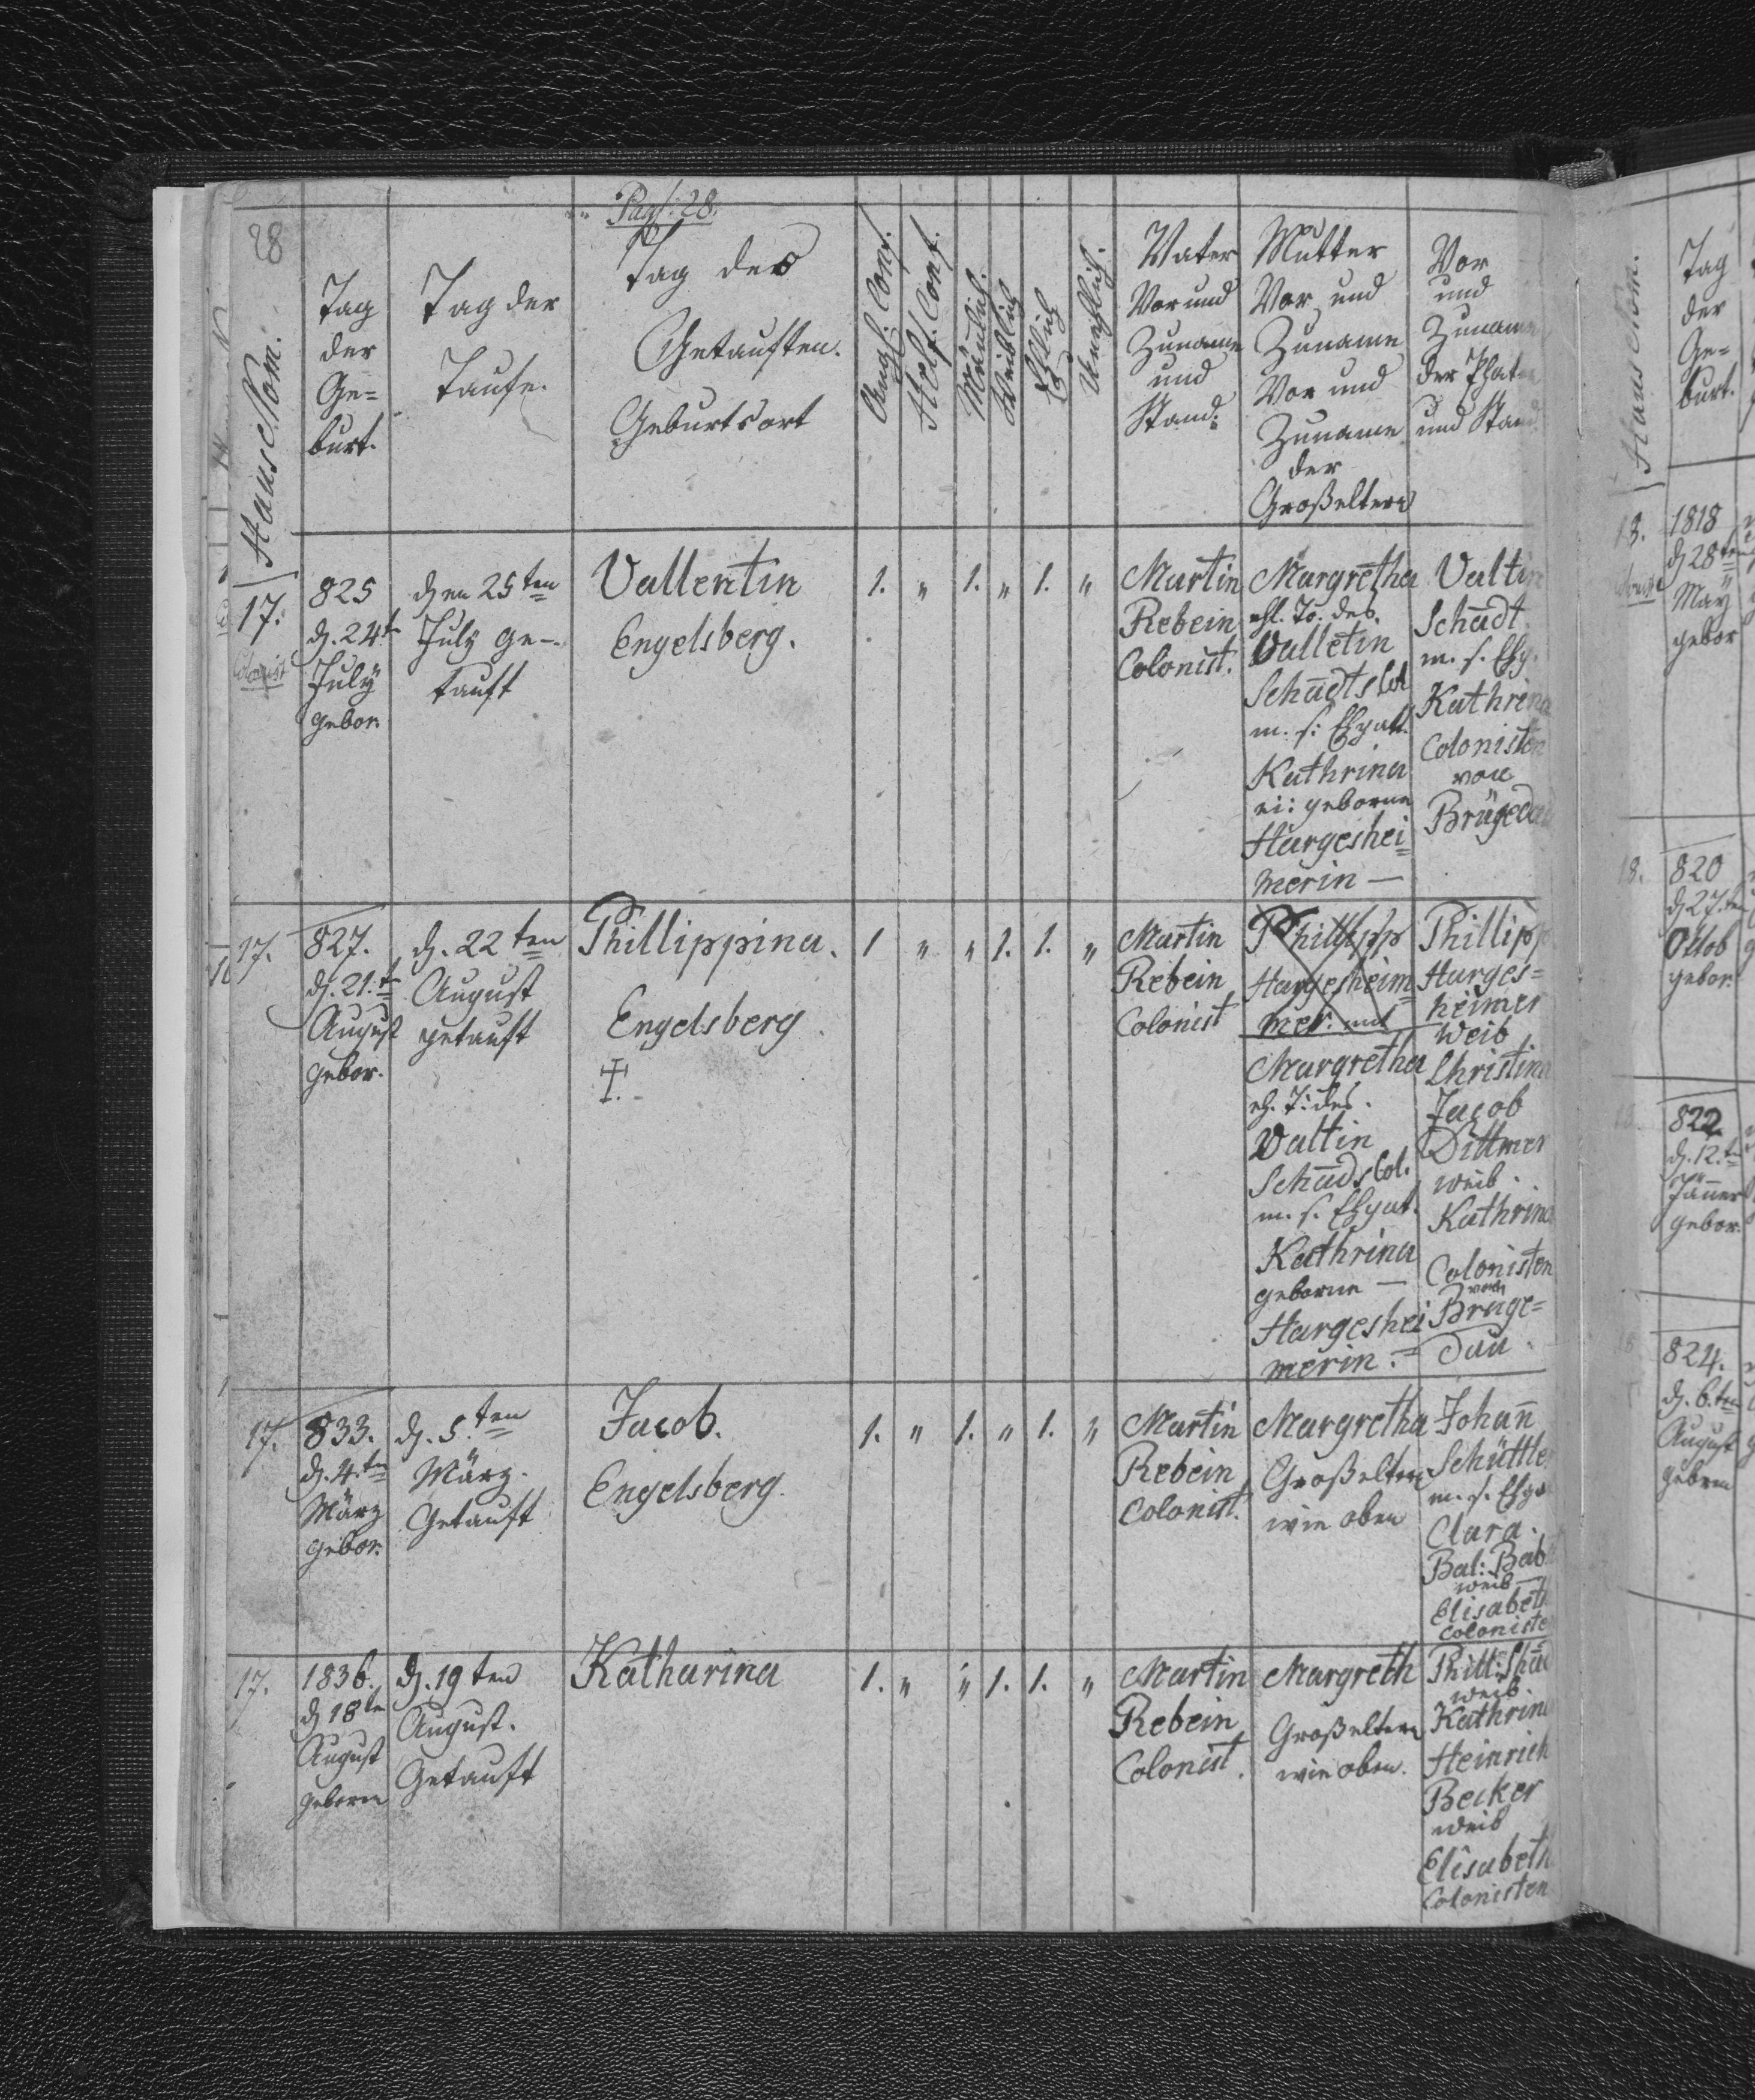 Pag: 28.
28
Haus Nom.
Tag
der
Ge=
burt.
Tag der
Taufe.
Tag der
Getauften.
Geburtsort
Augs. Conf.
Helf. Conf.
Mänlich.
Weiblich
Ehlich
Unehlich.
Vater
Vor und
Zuname
und
Stand.
Mutter
Vor und
Zuname
Vor und
Zuname
der
Großeltern
Vor
und
Zuname
der
und Stand
17.
Colonist
825
d. 24t
July
gebor.
den 25ten
July ge-
tauft
Vallentin
Engelsberg.
1. " 1. " 1. "
Martin
Rebein
Colonist.
Margretha
ehl. To. des
Valletin
Schadts Col
m. s. Ehgatt.
Kathrina
ei: geborne
Hargeshei=
merin —
Valtin
Schadt.
m. s. Ehg.
Kathrina
Colonisten
von
17.
827.
d. 21.t
August
gebor.
d. 22ten
August
getauft
Phillippina.
Engelsberg.
1 " " 1. 1. "
Martin
Rebein
Colonist
Phillipp
Hargesheim=
mer. und
Margretha
eh. T: des.
Valtin
Schads Col.
m. s. Ehgat.
Kathrina
geborne —
Hargeshei
merin.=
Phillipp
Harges=
heimer
Weib
Christina
Jacob
Dittmer
weib.
Kathrina
Colonisten
von
Bruge=
dau.
17.
833.
d. 4.ten
März
gebor.
d. 5.ten
März.
Getauft
Jacob.
Engelsberg.
1. " 1. " 1. "
Martin
Rebein
Colonist.
Margretha
Großeltern
wie oben
Johañ
Schüttle
m. s. Ehga
Clara.
Bal: Bab
weib
Elisabeth
Coloniste
17.
1836.
d 18ten
August
geboren
d. 19ten
August.
Getauft
Katharina
1. " " 1. 1. "
Martin
Rebein
Colonist.
Margreth
Großeltern
wie oben.
weib.
Kathrina
Heinrich
Becker
weib
Elisabeth
Colonisten
Haus Nom.
Tag
der
Ge=
burt.
18.
1818
d 28ten
May
gebor
18.
820
d 27.ten
Octob
gebor.
822.
d. 12.ten
Jäner
gebor.
824.
d. 6.ten
August
geboren